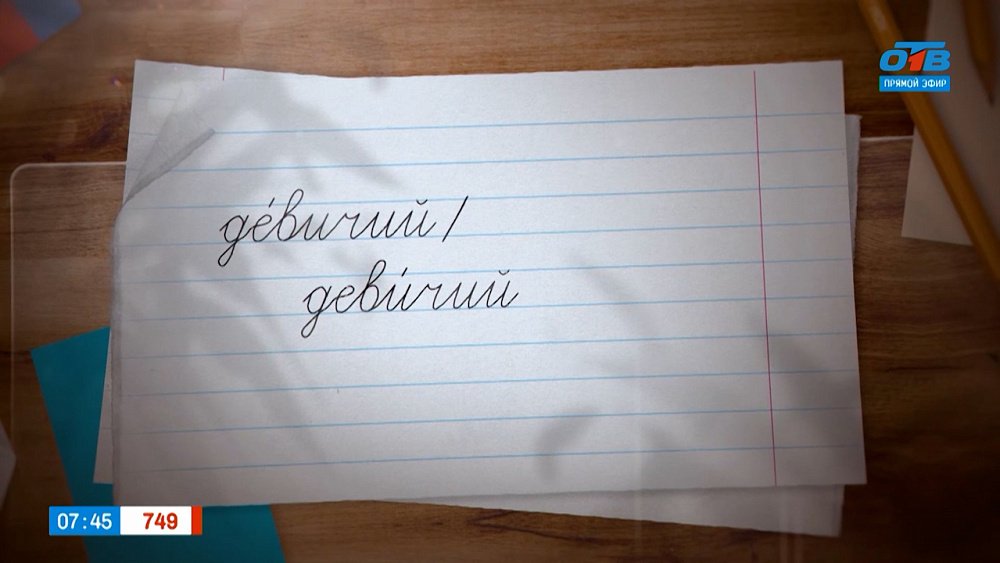 ОТВ
ПРЯМОЙ ЭФИР
де́вичий/
деви́чий
07:45 749